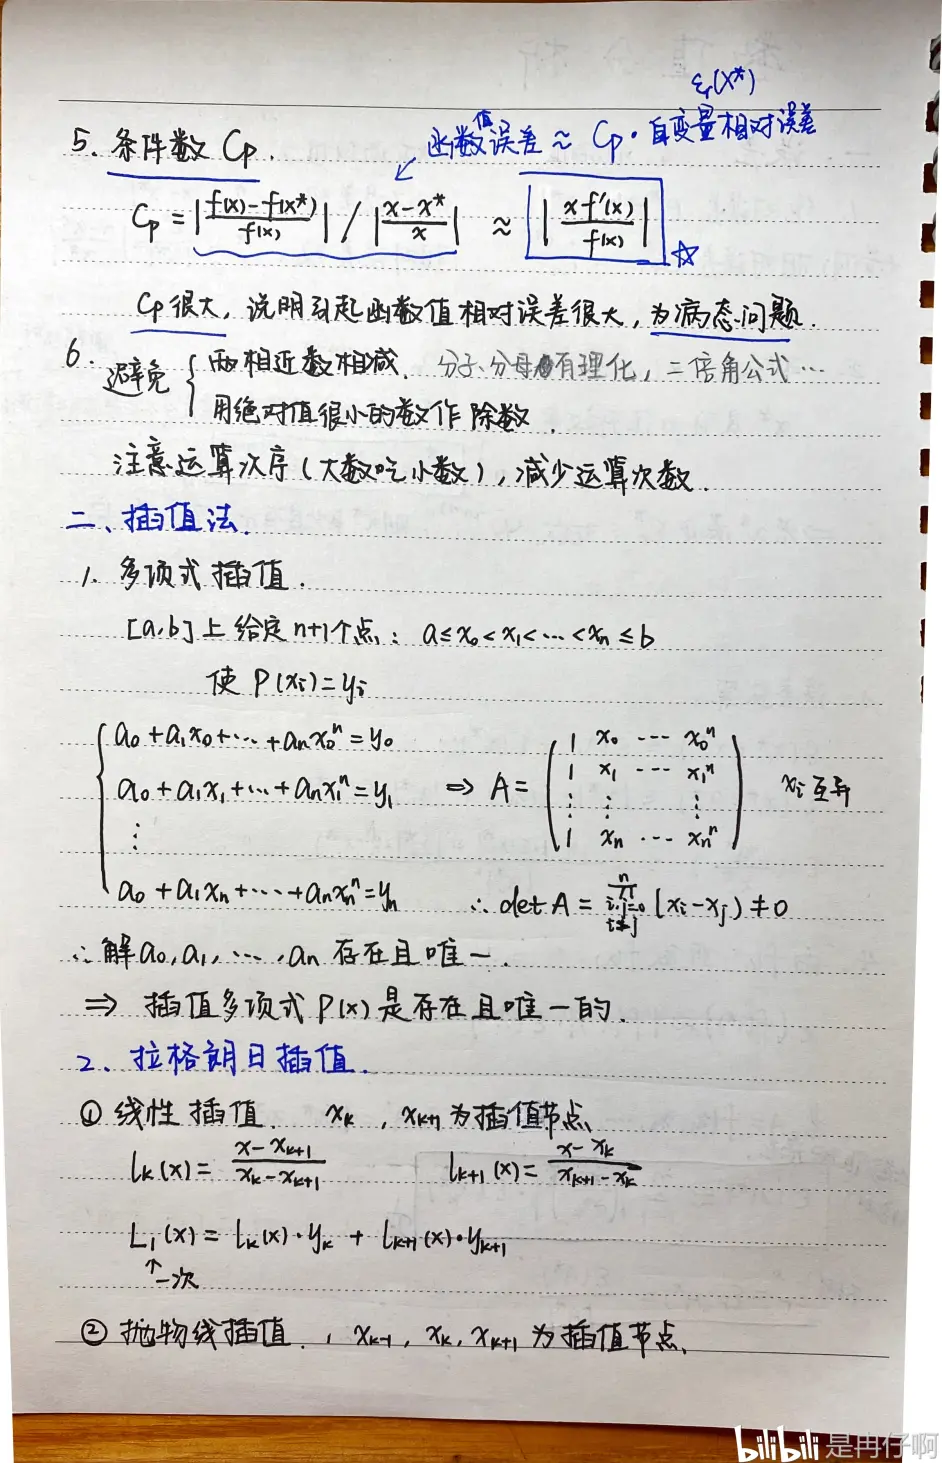 εr(x*)
函数值误差 ≈ Cp · 自变量相对误差
5. 条件数 Cp.
Cp = |(f(x)-f(x*))/f(x)| / |(x-x*)/x| ≈ |x f'(x)/f(x)| ☆
Cp 很大, 说明引起函数值相对误差很大, 为病态问题.
6. 避免 { 两相近数相减. 分子、分母有理化, 二倍角公式…
用绝对值很小的数作除数.
注意运算次序(大数吃小数), 减少运算次数.
二、插值法.
1. 多项式插值.
[a,b]上给定n+1个点: a≤x₀<x₁<…<xₙ≤b
使 P(xi)=yi
{ a₀+a₁x₀+…+aₙx₀ⁿ=y₀
a₀+a₁x₁+…+aₙx₁ⁿ=y₁ ⇒ A = ( 1 x₀ … x₀ⁿ
1 x₁ … x₁ⁿ
⋮ ⋮ ⋮
1 xₙ … xₙⁿ ) xi 互异
⋮
a₀+a₁xₙ+…+aₙxₙⁿ=yₙ ∴ det A = ∏ⁿ i,j=0 i≠j (xi-xj) ≠ 0
∴ 解 a₀, a₁, …, aₙ 存在且唯一.
⇒ 插值多项式 P(x) 是存在且唯一的.
2、拉格朗日插值.
① 线性插值. xk, xk+1 为插值节点.
lk(x) = (x-xk+1)/(xk-xk+1) lk+1(x) = (x-xk)/(xk+1-xk)
L₁(x) = lk(x)·yk + lk+1(x)·yk+1
↑一次
② 抛物线插值., xk-1, xk, xk+1 为插值节点.
bilibili 是冉仔啊